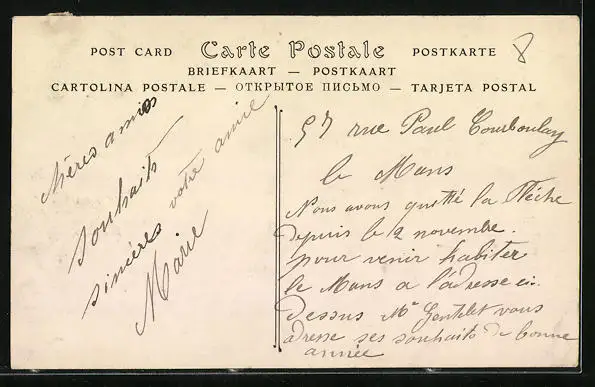 POST CARD Carte Postale POSTKARTE
BRIEFKAART — POSTKAART
CARTOLINA POSTALE — ОТКРЫТОЕ ПИСЬМО — TARJETA POSTAL
chères amies
souhaits
sincères votre amie
Marie
57 rue Paul Courboulay
le Mans
Nous avons quitté la Flèche
depuis le 2 novembre.
pour venir habiter
le Mans a l'adresse ci.
dessus Mr Gentelet vous
adresse ses souhaits de bonne
année